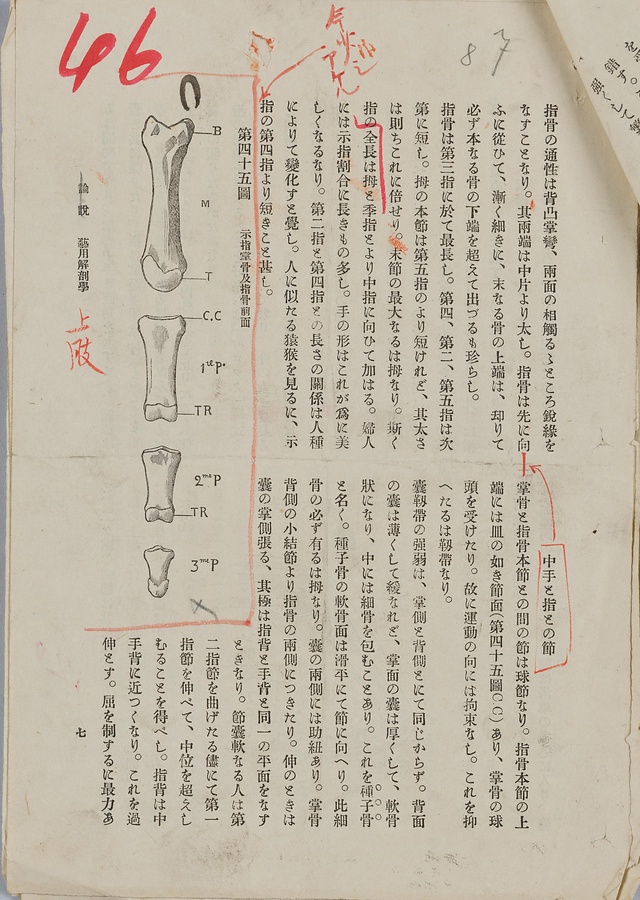 46
87
指骨の通性は背凸掌彎、兩面の相觸るゝところ銳緣を
なすことなり。其兩端は中片より太し。指骨は先に向
ふに從ひて、漸く細きに、末なる骨の上端は、却りて
必ず本なる骨の下端を超えて出づるも珍らし。
指骨は第三指に於て最長し。第四、第二、第五指は次
第に短し。拇の本節は第五指のより短けれど、其太さ
は則ちこれに倍せり。末節の最大なるは拇なり。斯く
指の全長は拇と季指とより中指に向ひて加はる。婦人
には示指割合に長きもの多し。手の形はこれが爲に美
しくなるなり。第二指と第四指との長さの關係は人種
によりて變化すと覺し。人に似たる猿猴を見るに、示
指の第四指より短きこと甚し。
第四十五圖 示指掌骨及指骨前面
B
M
T
C.C
1re P.
TR
2me P
TR
3me P
中手と指との節
掌骨と指骨本節との間の節は球節なり。指骨本節の上
端には皿の如き節面(第四十五圖CC)あり、掌骨の球
頭を受けたり。故に運動の向には拘束なし。これを抑
へたるは靱帶なり。
囊靱帶の强弱は、掌側と背側とにて同じからず。背面
の囊は薄くして緩なれど、掌面の囊は厚くして、軟骨
狀になり、中には細骨を包むことあり。これを種子骨
と名く。種子骨の軟骨面は滑平にて節に向へり。此細
骨の必ず有るは拇なり。囊の兩側には助紐あり。掌骨
背側の小結節より指骨の兩側につきたり。伸のときは
囊の掌側張る、其極は指背と手背と同一の平面をなす
ときなり。節囊軟なる人は第
二指節を曲げたる儘にて第一
指節を伸べて、中位を超えし
むることを得べし。指背は中
手背に近つくなり。これを過
伸とす。屈を制するに最力あ
論說 藝用解剖學
上肢
七